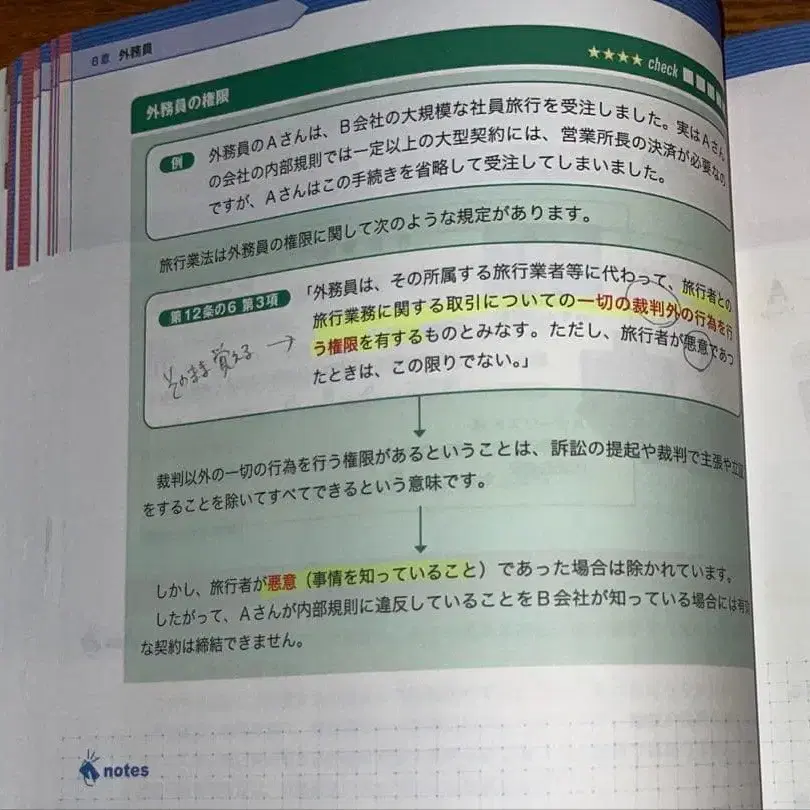 6章 外務員
外務員の権限
★★★★ check
例 外務員のAさんは、B会社の大規模な社員旅行を受注しました。実はAさん
の会社の内部規則では一定以上の大型契約には、営業所長の決済が必要なの
ですが、Aさんはこの手続きを省略して受注してしまいました。
旅行業法は外務員の権限に関して次のような規定があります。
第12条の6 第3項
「外務員は、その所属する旅行業者等に代わって、旅行者との
旅行業務に関する取引についての一切の裁判外の行為を行
う権限を有するものとみなす。ただし、旅行者が悪意であっ
たときは、この限りでない。」
そのまま覚える →
裁判以外の一切の行為を行う権限があるということは、訴訟の提起や裁判で主張や立証
をすることを除いてすべてできるという意味です。
しかし、旅行者が悪意（事情を知っていること）であった場合は除かれています。
したがって、Aさんが内部規則に違反していることをB会社が知っている場合には有効
な契約は締結できません。
notes